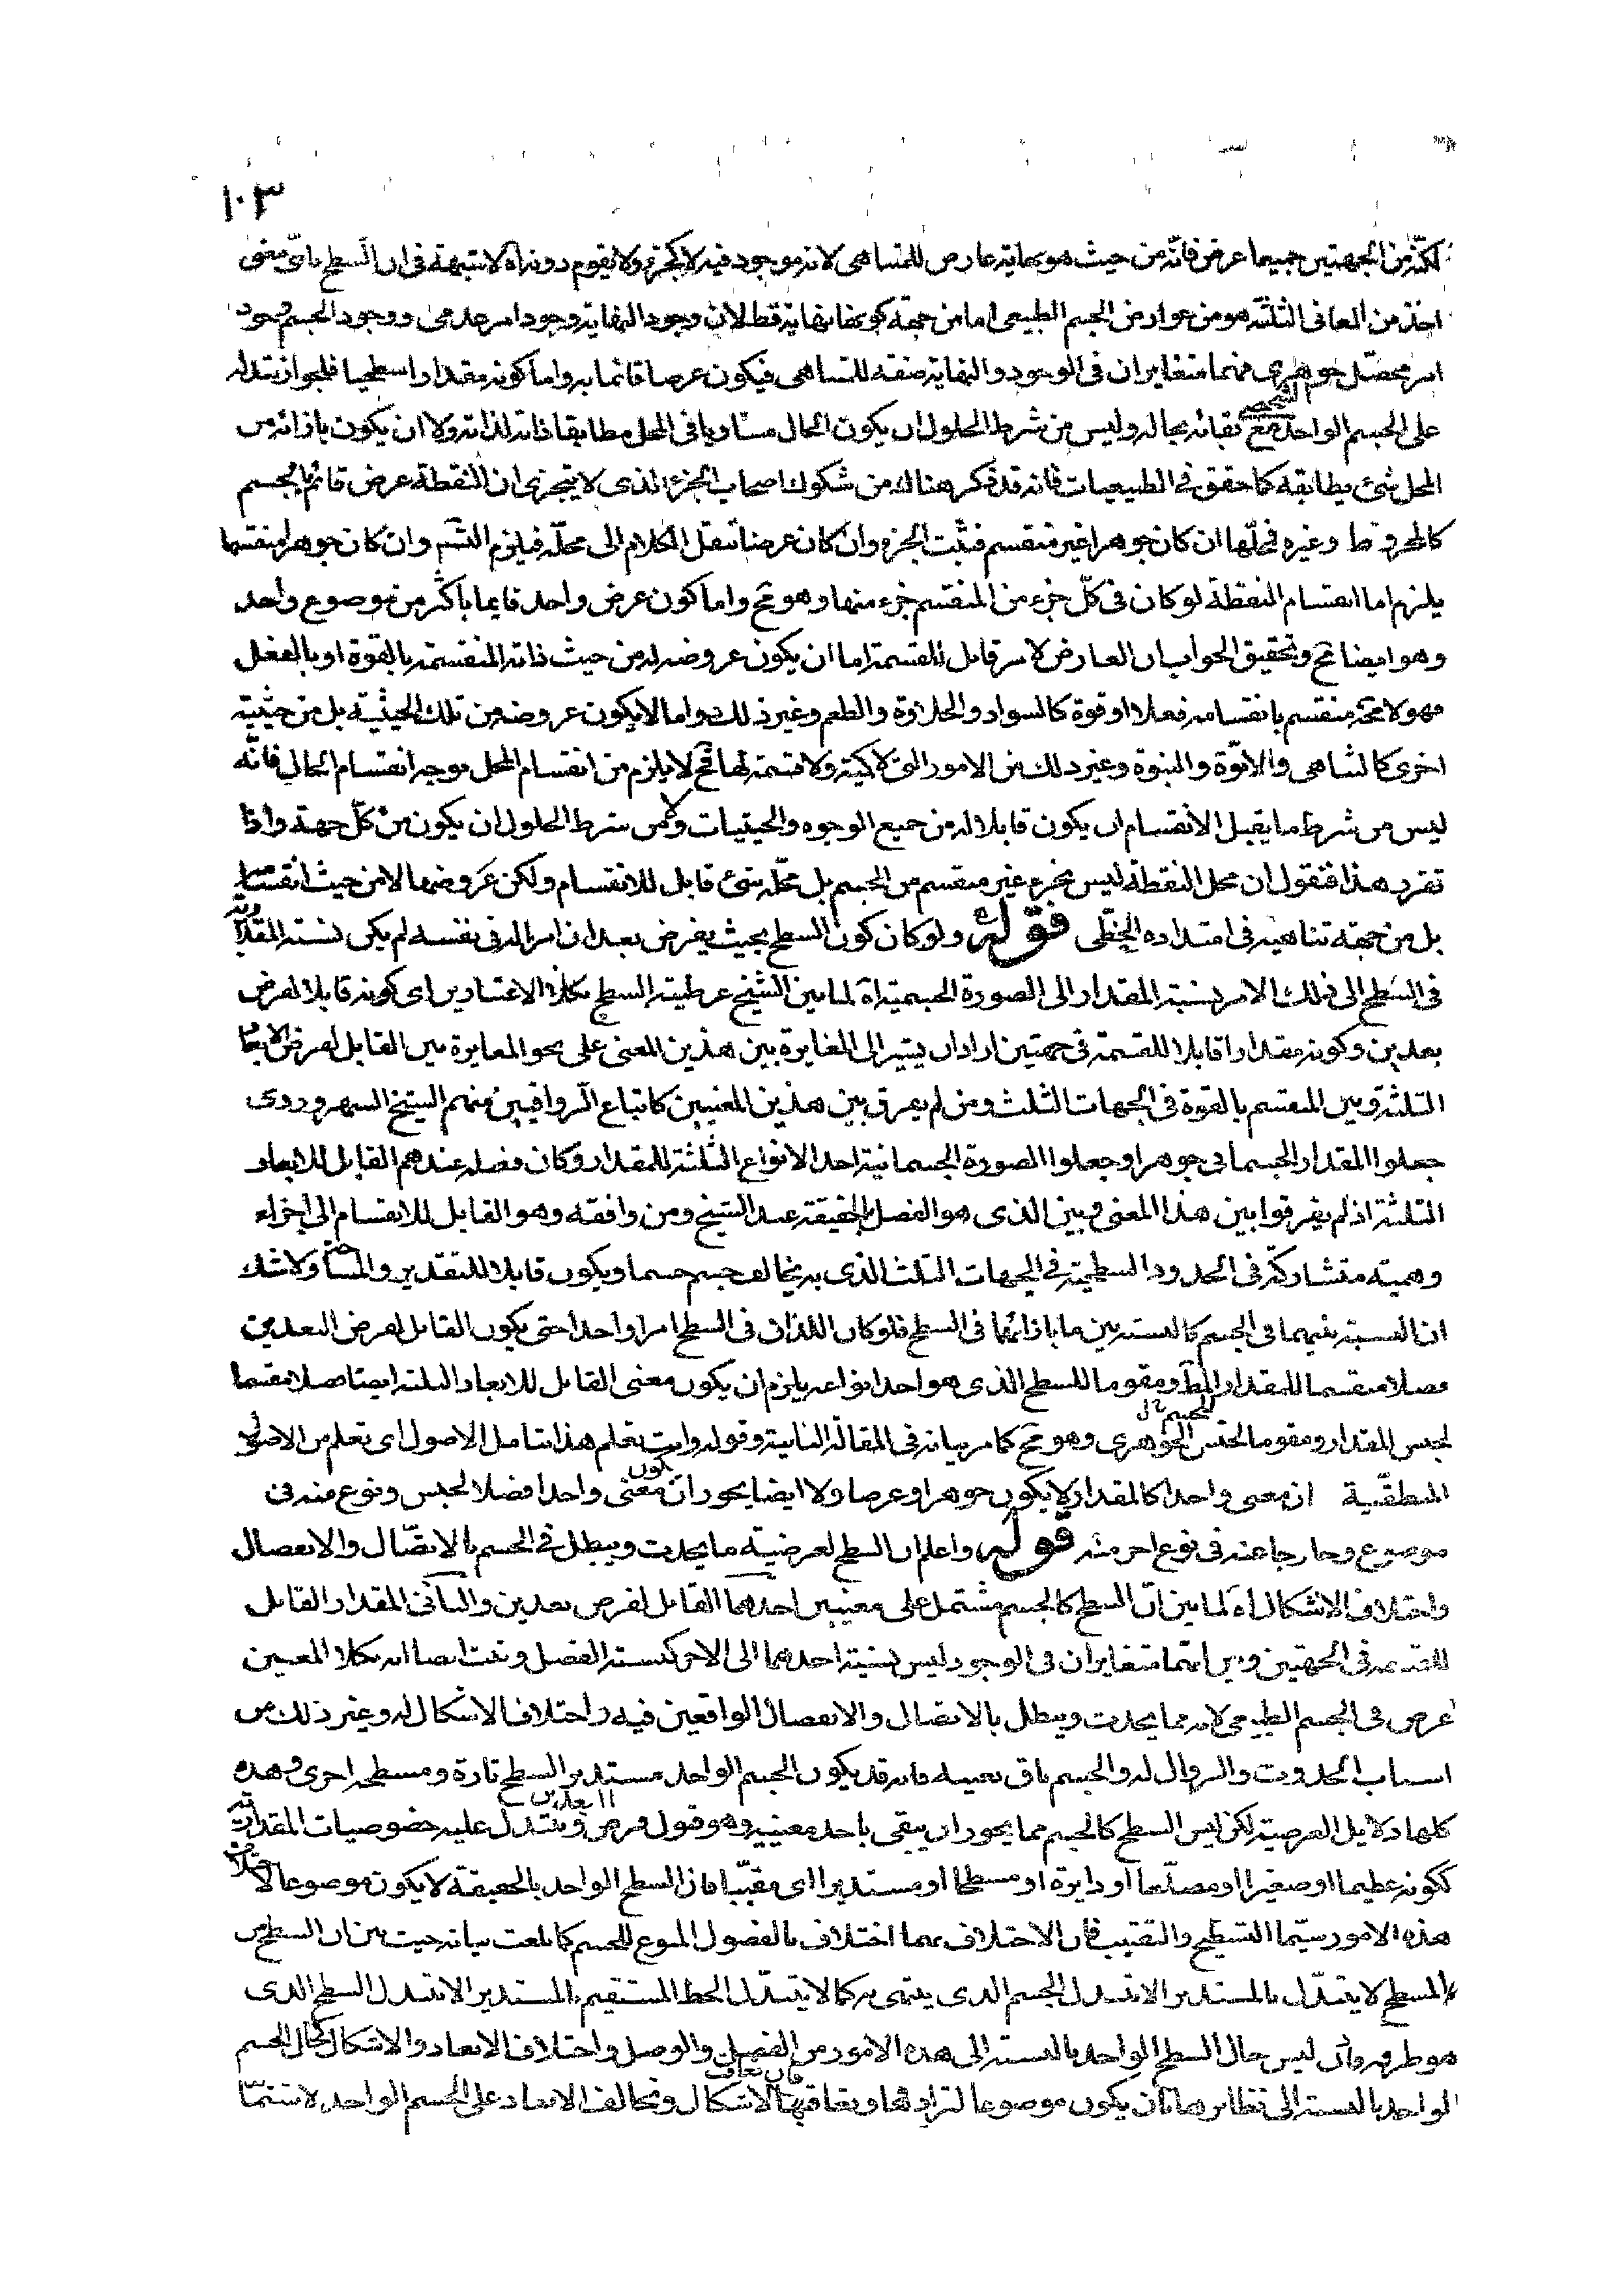 ١٠٣
لكنّه من الجهتين جميعا عرض فانّه من حيث هو نهاية عارض للمتناهى لانه موجود فيه لا كجزء ولا يقوم دونه اه لا شبهة فى ان السطح باىّ معنى
اخذ من المعانى الثلثة هو من عوارض الجسم الطبيعى اما من جهة كونها نهاية فقط لان وجود النهاية وجود امر عدمى ووجود الجسم وجود
امر محصّل جوهرى فهما متغايران فى الوجود والنهاية صفة للمتناهى فيكون عرضا قائما به واما كونه مقدارا سطحيا فلجواز تبدله
على الجسم الواحد الشخصى مع بقائه بحاله وليس من شرط الحلول ان يكون الحال مساويا فى المحل مطابقا ذاته لذاته ولا ان يكون بازائه من
المحل شئ يطابقه كما حقق فى الطبيعيات فانه قد ذكر هناك من شكوك اصحاب الجزء الذى لا يتجزى ان النقطة عرض قائم بالجسم
كالمخروط وغيره فمحلّها ان كان جوهرا غير منقسم فثبت الجزء وان كان عرضا ننقل الكلام الى محلّه فيلزم التسم وان كان جوهرا منقسما
يلزم اما انقسام النقطة لو كان فى كلّ جزء من المنقسم جزء منها وهو مح واما كون عرض واحد قايما باكثر من موضوع واحد
وهو ايضا مح وتحقيق الجواب ان العارض لامر قابل للقسمة اما ان يكون عروضه له من حيث ذاته المنقسمة بالقوة او بالفعل
فهو لا محة منقسم بانقسامه فعلا او قوة كالسواد والحلاوة والطعم وغير ذلك واما لا يكون عروضه من تلك الحيثية بل من حيثية
اخرى كالتناهى والابوّة والبنوة وغير ذلك من الامور التى لا كمية ولا قسمة لها فح لا يلزم من انقسام المحل بوجه انقسام الحال فانّه
ليس من شرط ما يقبل الانقسام ان يكون قابلا له من جميع الوجوه والحيثيات ولا من شرط الحلول ان يكون من كلّ جهة واذا
تقرر هذا فنقول ان محل النقطة ليس بجزء غير منقسم من الجسم بل محلّه شئ قابل للانقسام ولكن عروضها لا من حيث انقسامه
بل من جهة تناهيه فى امتداده الخطّى قوله ولو كان كون السطح بحيث يفرض بعدان امرا له فى نفسه لم يكن نسبة المقدارية
فى السطح الى ذلك الامر نسبة المقدار الى الصورة الجسمية اه لما بين الشيخ عرضية السطح بكلا الاعتبارين اى كونه قابلا لفرض
بعدين وكونه مقدارا قابلا للقسمة فى جهتين اراد ان يشير الى المغايرة بين هذين المعنى على نحو المغايرة بين القابل لفرض الابعاد
الثلثة وبين المنقسم بالقوة فى الجهات الثلث ومن لم يفرق بين هذين المعنيين كاتباع الرواقيين منهم الشيخ السهروردى
جعلوا المقدار الجسمانى جوهرا وجعلوا الصورة الجسمانية احد الانواع الثلثة للمقدار وكان فصله عندهم القابل للابعاد
الثلثة اذ لم يفرقوا بين هذا المعنى وبين الذى هو الفصل بالحقيقة عند الشيخ ومن وافقه وهو القابل للانقسام الى اجزاء
وهمية متشاركة فى الحدود السطحية فى الجهات الثلث الذى به يخالف جسم جسما ويكون قابلا للتقدير والمساحة ولا شك
ان النسبة بينهما فى الجسم كالنسبة بين ما بازائهما فى السطح فلو كان اللذان فى السطح امرا واحدا حتى يكون القابل لفرض البعدين
فصلا مقسما للمقدار المط ومقوما للسطح الذى هو احد انواعه يلزم ان يكون معنى القابل للابعاد الثلثة ايضا فصلا مقسما
لجنس المقدار ومقوما للجسم الجوهرى وهو مح كما مر بيانه فى المقالة الثانية وقوله وانت تعلم هذا بتامل الاصول اى تعلم من الاصول
المنطقيّة ان معنى واحدا كالمقدار لا يكون جوهرا وعرضا ولا ايضا يجوز ان يكون معنى واحد فصلا لجنس ونوع منه فى
موضوع وخارجا عنه فى نوع اخر منه قوله واعلم ان السطح لعرضيته ما يحدث ويبطل فى الجسم بالاتصّال والانفصال
واختلاف الاشكال اه لما بين انّ السطح كالجسم مشتمل على معنيين احدهما القابل لفرض بعدين والثانى المقدار القابل
للقسمة فى الجهتين وبين انهما متغايران فى الوجود ليس نسبة احدهما الى الاخر كنسبة الفصل وثبت ايضا انه بكلا المعنيين
عرض فى الجسم الطبيعى لانه مما يحدث ويبطل بالاتصال والانفصال الواقعين فيه واختلاف الاشكال له وغير ذلك من
اسباب الحدوث والزوال له والجسم باق بعينه فانه قد يكون الجسم الواحد مستدير السطح تارة ومسطحه اخرى وهذه
كلها دلايل العرضية لكن ليس السطح كالجسم مما يجوز ان يبقى باحد معنييه وهو قبول فرض البعدين وتتبدل عليه خصوصيات المقدارية
ككونه عظيما او صغيرا او مضلّعا او دايرة او مسطحا او مستديرا اى مقبّبا فان السطح الواحد بالحقيقة لا يكون موضوعا لاختلاف
هذه الامور سيّما التسطيح والتقبيب فان الاختلاف بهما اختلاف بالفصول المنوع للجسم كما بلغت بيانه حيث بين ان السطح من
المسطح لا يتبدّل بالمستدير الا بتبدل الجسم الذى ينتهى به كما لا يتبدّل الخط المستقيم بالمستدير الا بتبدل السطح الذى
هو طرفه وان ليس حال السطح الواحد بالنسبة الى هذه الامور من الفصل والوصل واختلاف الابعاد والاشكال كحال الجسم
الواحد بالنسبة الى نظايرها بان يكون موضوعا لترادفها وتعاقبها فان تعاقب الاشكال وتخالف الابعاد على الجسم الواحد لا سيّما